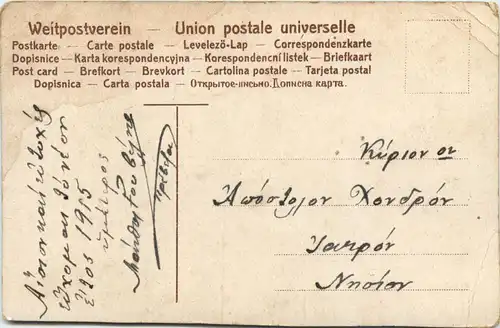 Weltpostverein — Union postale universelle
Postkarte — Carte postale — Levelező-Lap — Correspondenzkarte
Dopisnice — Karta korespondencyjna — Korespondencní lístek — Briefkaart
Post card — Brefkort — Brevkort — Cartolina postale — Tarjeta postal
Dopisnica — Carta postala — Открытое письмо. Дописна карта.
Αἴσιον καὶ εὐτυχὲς
εὔχομαι τὸ νέον
ἔτος 1915
Κύριον
Ἀπόστολον Χονδρόν
Ἰατρόν
Νησίον